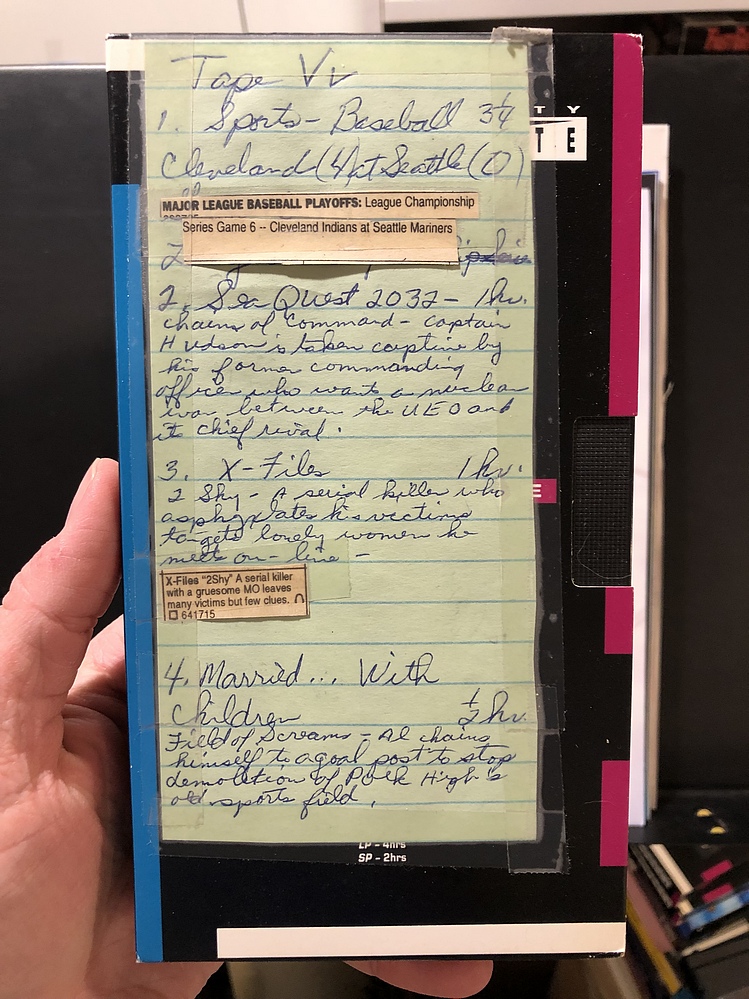 Tape Vv
1. Sports - Baseball 3¼
Cleveland (4) at Seattle (0)
MAJOR LEAGUE BASEBALL PLAYOFFS: League Championship
Series Game 6 -- Cleveland Indians at Seattle Mariners
2.
2. Sea Quest 2032 - 1 hr.
Chains of Command - captain
Hudson is taken captive by
his former commanding
officer who wants a nuclear
war between the UEO and
its chief rival.
3. X-Files 1 hr.
2 Shy - A serial killer who
asphyxiates his victims
targets lonely women he
meets on-line -
X-Files "2Shy" A serial killer
with a gruesome MO leaves
many victims but few clues.
641715
4. Married... With
Children ½ hr.
Field of Screams - Al chains
himself to a goal post to stop
demolition of Polk High's
old sports field.
TY
TE
E
LP - 4hrs
SP - 2hrs